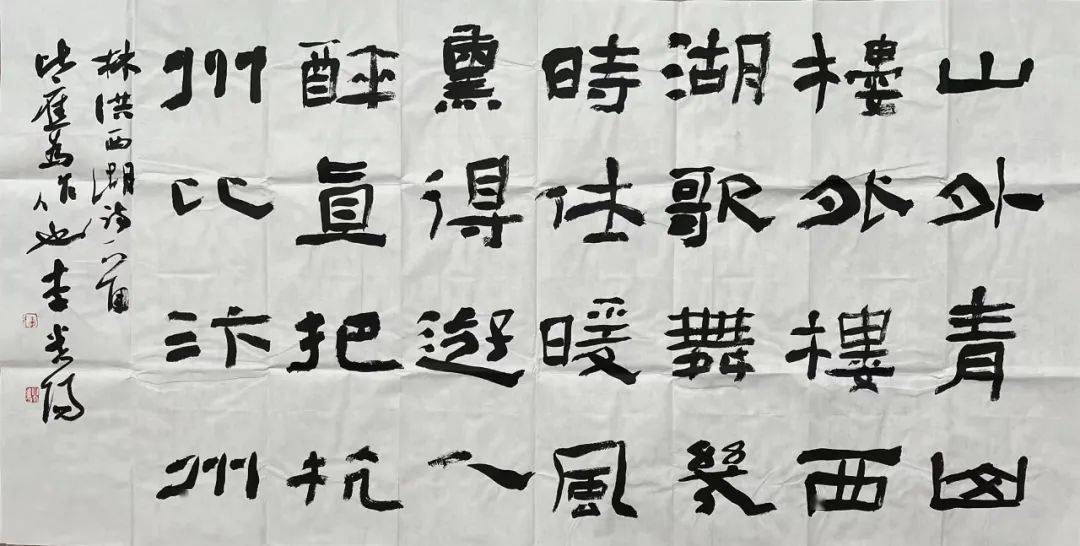 山外青山
樓外樓西
湖歌舞幾
時休暖風
熏得遊人
醉眞把杭
州比汴州
林洪西湖詩一首
比應為作也李陽